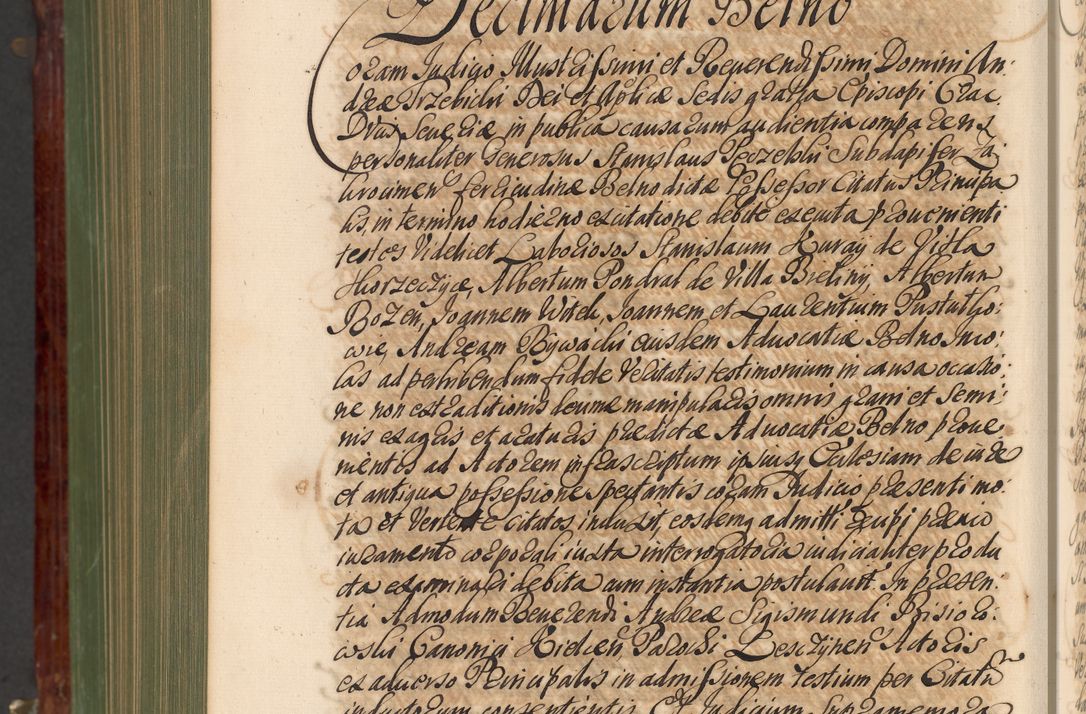 Decimarum Belno
oram Judicio Illustrissimi et Reverendissimi Domini An:
dreæ Trzebicki Dei et Aplicæ Sedis gratia Episcopi Crac.
Ducis Severiæ in publica causarum audientia comparens
personaliter Generosus Stanislaus Subdapifer
Belno dictæ Possessor Citatus Principa
lis, in termino hodierno ex citatione debite executa provenienti
testes Videlicet Laboriosos Stanislaum Kuray de Villa
Chorzeczyæ, Albertum Pondral de Villa Bieliny, Albertum
Bozen, Joannem Witek, Joannem et Laurentium Pastucho:
wie, Andream Bywacki eiusdem Advocatiæ Belno Inco:
las ad perhibendum fidele Veritatis testimonium in causa occasio:
ne non extraditionis decimæ manipularis omnis grani et semi:
nis ex agris et araturis prædictæ Advocatiæ Belno prove:
nientis ad Actorem infrascriptum ipsiusq Ecclesiam de iure
et antiqua possessione spectantis coram Judicio præsenti mo:
ta et Vertente Citatos induxit, eosdemq admitti, recipi præuio
iuramento corporali iuxta interrogatoria iudicialiter produ
cta examinari debita cum instantia postulauit. In præsen:
tia Admodum Reuerendi Andreæ Sigismundi
Canonici Kielcen Parochi Leszczynen Actoris
ex aduerso Principalis in admissionem testium per Citatu
inductorum consentientis Et Judicium